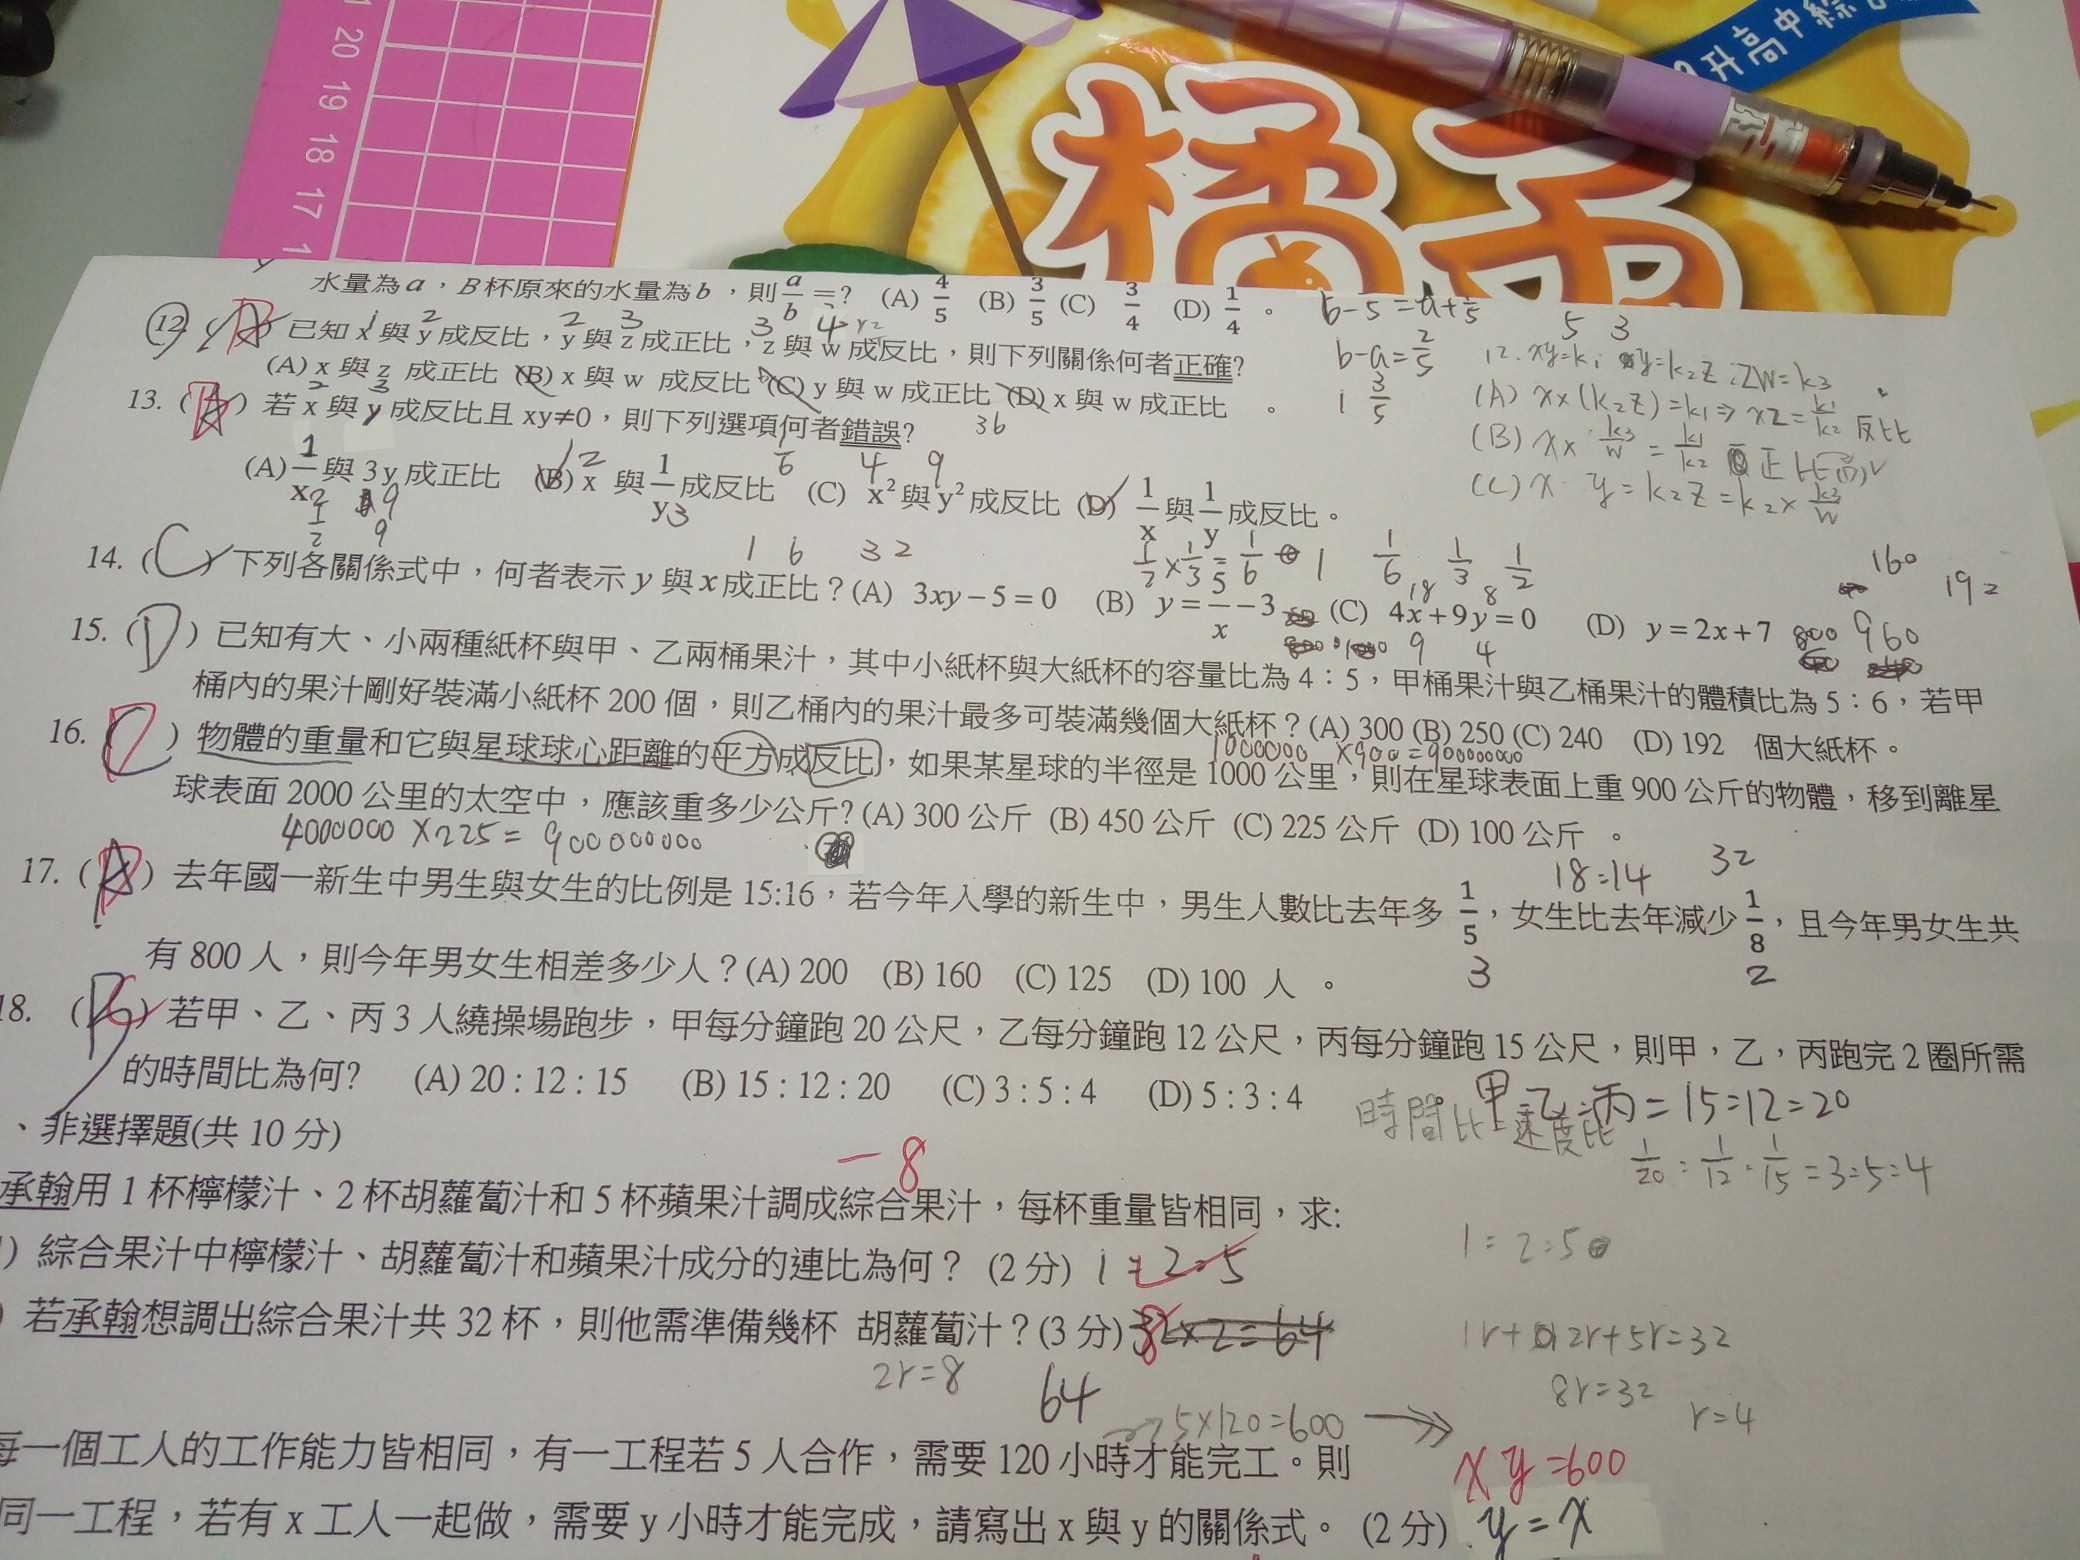 20
19
18
17
升高中綜合
橘子
水量為a，B杯原來的水量為b，則a/b=? (A) 4/5 (B) 3/5 (C) 3/4 (D) 1/4 。
b-5=a+1/5
b-a=2/5
1 3/5
5 3
12. ( D ) 已知 x 與 y 成反比，y 與 z 成正比，z 與 w 成反比，則下列關係何者正確?
(A) x 與 z 成正比 (B) x 與 w 成反比 (C) y 與 w 成正比 (D) x 與 w 成正比 。
12. xy=k1 y=k2z zw=k3
(A) x×(k2z)=k1⇒xz=k1/k2 反比
(B) x× k3/w = k1/k2 正比
(C) x y=k2z=k2×k3/w
13. ( ) 若 x 與 y 成反比且 xy≠0，則下列選項何者錯誤?
36
(A) 1/x 與 3y 成正比 (B) x 與 1/y 成反比 (C) x² 與 y² 成反比 (D) 1/x 與 1/y 成反比。
1/2×1/3=1/6 1 1/6 1/3 1/2
14. ( C ) 下列各關係式中，何者表示 y 與 x 成正比？(A) 3xy−5=0 (B) y=5/x−3 (C) 4x+9y=0 (D) y=2x+7
1 6 3 2
18 8
9 4
160 192
800 960
15. ( D ) 已知有大、小兩種紙杯與甲、乙兩桶果汁，其中小紙杯與大紙杯的容量比為 4：5，甲桶果汁與乙桶果汁的體積比為 5：6，若甲
桶內的果汁剛好裝滿小紙杯 200 個，則乙桶內的果汁最多可裝滿幾個大紙杯？(A) 300 (B) 250 (C) 240 (D) 192 個大紙杯。
1000000 ×900=900000000
16. ( C ) 物體的重量和它與星球球心距離的平方成反比，如果某星球的半徑是 1000 公里，則在星球表面上重 900 公斤的物體，移到離星
球表面 2000 公里的太空中，應該重多少公斤? (A) 300 公斤 (B) 450 公斤 (C) 225 公斤 (D) 100 公斤 。
4000000 ×225= 900000000
18:14 32
17. ( ) 去年國一新生中男生與女生的比例是 15:16，若今年入學的新生中，男生人數比去年多 1/5，女生比去年減少 1/8，且今年男女生共
有 800 人，則今年男女生相差多少人？(A) 200 (B) 160 (C) 125 (D) 100 人 。
3 2
18. ( ) 若甲、乙、丙 3 人繞操場跑步，甲每分鐘跑 20 公尺，乙每分鐘跑 12 公尺，丙每分鐘跑 15 公尺，則甲，乙，丙跑完 2 圈所需
的時間比為何? (A) 20：12：15 (B) 15：12：20 (C) 3：5：4 (D) 5：3：4
甲:乙:丙=15:12=20
時間比 速度比
1/20:1/12:1/15=3:5:4
、非選擇題(共 10 分)
-8
承翰用 1 杯檸檬汁、2 杯胡蘿蔔汁和 5 杯蘋果汁調成綜合果汁，每杯重量皆相同，求:
) 綜合果汁中檸檬汁、胡蘿蔔汁和蘋果汁成分的連比為何？ (2 分) 1:2:5
1:2:5
) 若承翰想調出綜合果汁共 32 杯，則他需準備幾杯 胡蘿蔔汁？(3 分) 32×2=64
8
1r+2r+5r=32
2r=8
64
8r=32
r=4
5×120=600
每一個工人的工作能力皆相同，有一工程若 5 人合作，需要 120 小時才能完工。則
xy=600
同一工程，若有 x 工人一起做，需要 y 小時才能完成，請寫出 x 與 y 的關係式。 (2 分)
y=x